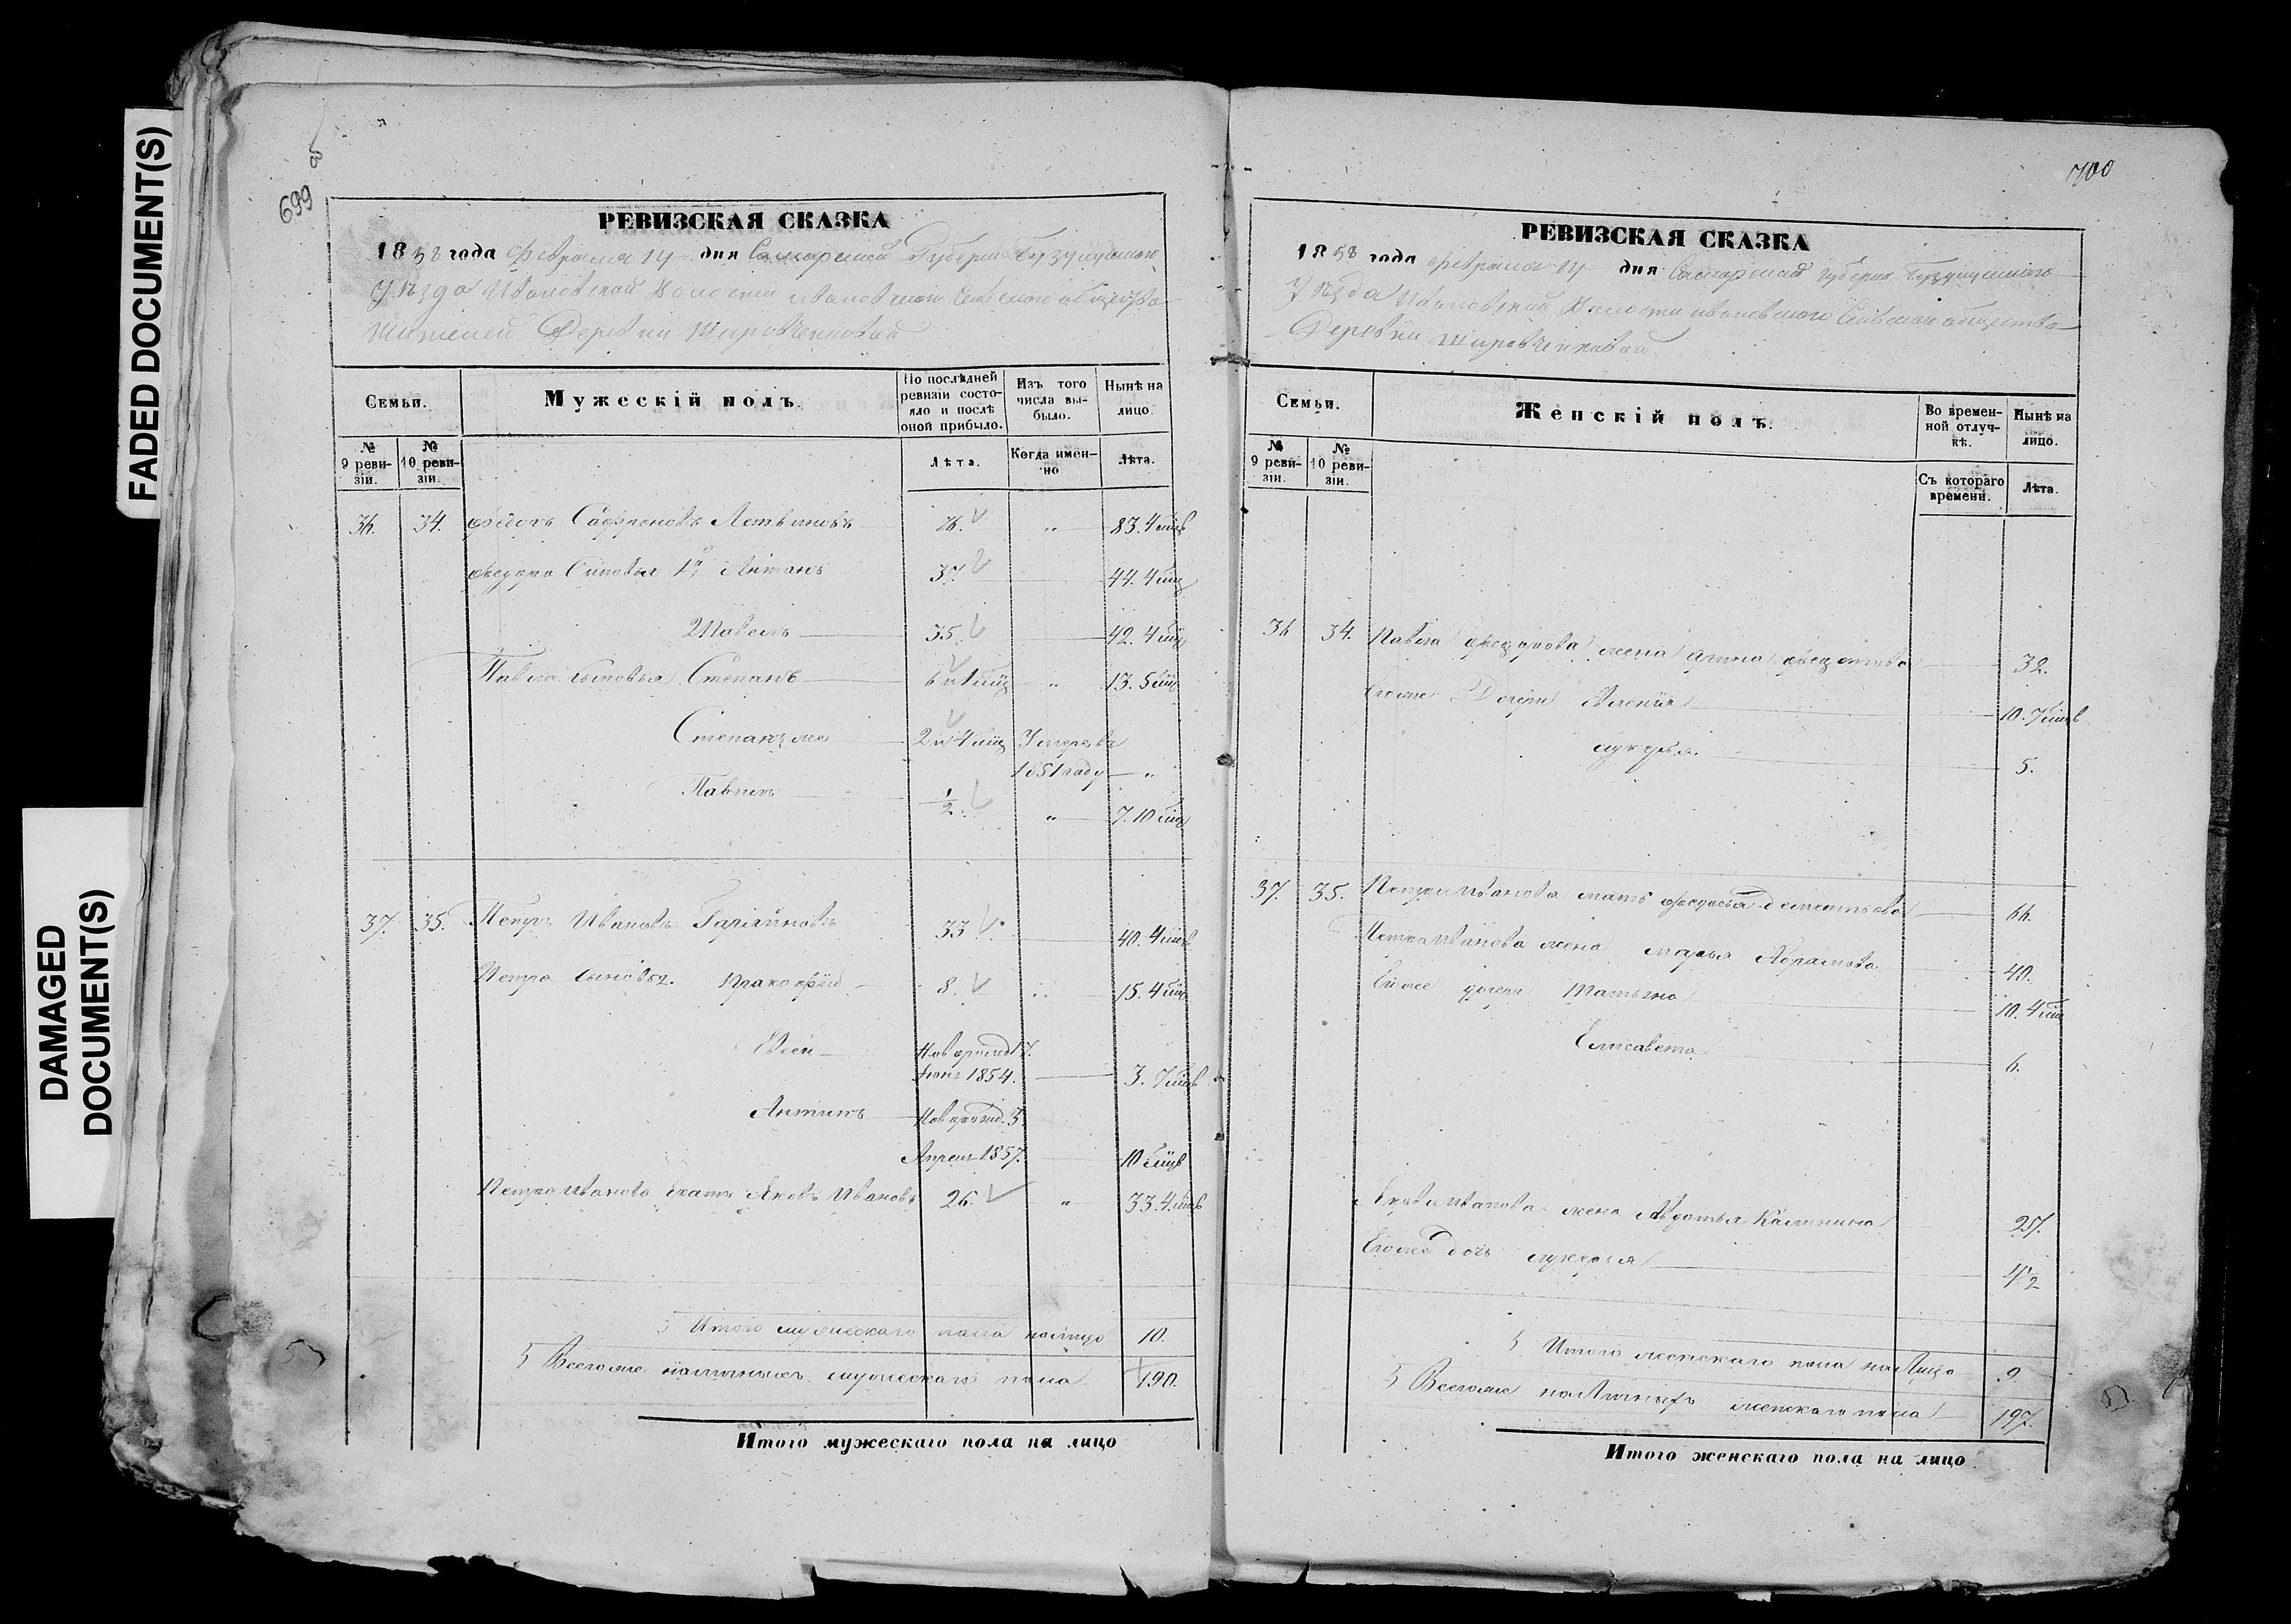 FADED DOCUMENT(S)
DAMAGED
DOCUMENT(S)
699
РЕВИЗСКАЯ СКАЗКА
1858 года Февраля 14 дня Самарской Губернии Бузулуцкого
Уѣзда Ивановской Волости Ивановского Сельского общества
Жителей Деревни
Семьи.
Мужескій полъ.
По послѣдней ревизіи состояло и послѣ оной прибыло.
Изъ того числа выбыло.
Нынѣ на лицо.
№ 9 ревизіи.
№ 10 ревизіи.
Лѣта.
Когда именно
Лѣта.
36. 34. Федоръ Сафроновъ Литвиновъ 76. " 83. 4 мѣс
Федора Сыновья 1й Антонъ 37. 44. 4 мѣц
2 Павелъ 35. 42. 4 мѣц
Павла сыновья Степанъ 6 и 1 мѣц " 13. 5 мѣц
Степанъ же 2 и 4 мѣц Умеръ въ
1851 году "
Павелъ 1/2. " 7. 10 мѣц
37. 35. Петръ Ивановъ 33 40. 4 мѣс
Петра сыновья. Пракофей 8. " 15. 4 мѣц
Новорожд 17.
Июня 1854. 3. 7 мѣс
Антипъ Новорожд. 3
Апреля 1857. 10 мѣс
Петра Иванова братъ Яковъ Ивановъ 26. " 33. 4. мѣс
Итого мужескаго пола налицо 10.
Всего же наличныхъ мужескаго пола 190.
Итого мужескаго пола на лицо
700
РЕВИЗСКАЯ СКАЗКА
1858 года Февраля 14 дня Самарской Губернии Бузулуцкого
Уѣзда Ивановской Волости Ивановского Сельского общества
Деревни
Семьи.
Женскій полъ.
Во временной отлучкѣ.
Нынѣ на лицо.
№ 9 ревизіи.
№ 10 ревизіи.
Съ котораго времени.
Лѣта.
36 34. Павла Федорова жена Арина 32.
Его же Дочери 10. 7 мѣсв
лукерья. 5.
37. 35. Петра Иванова мать Федосья Дементьева 66.
Петра Иванова жена марья Абрамова 40.
Его же дочери Татьяна 10. 4 мѣц
Елисавета 6.
Якова Иванова жена Авдотья Калинина 27.
Его же дочь лукерья 4 1/2
Итого женскаго пола на Лицо 9.
Всего же наличныхъ женскаго пола 197.
Итого женскаго пола на лицо